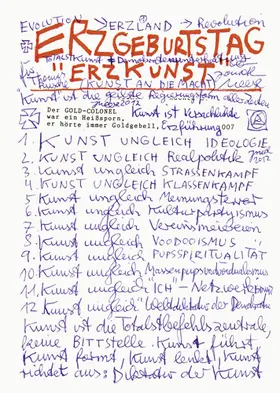 EVOLUTION → ERZLAND → Revolution
ERZGEBURTSTAG
ERZKUNST
KUNST AN DIE MACHT
"Kunst ist die
Der GOLD-COLONEL
war ein Heißsporn,
er hörte immer Goldgebell,
Kunst ist Verschließe
Erzführung 007
1. KUNST UNGLEICH IDEOLOGIE,
2. KUNST UNGLEICH Realpolitik
3. KUNST UNGLEICH STRASSENKAMPF
4. KUNST UNGLEICH KLASSENKAMPF
5. Kunst ungleich Meinungsterror
6. Kunst ungleich Kulturpartyismus
7. Kunst ungleich Vereinsmeiereien
8. Kunst ungleich VOODOOISMUS
9. Kunst ungleich PUPSSPIRITUALITÄT
10. Kunst ungleich
11. Kunst ungleich "ICH"-Netzwerkerei
12. Kunst ungleich Weltdiktatur der Demokratie
Kunst ist die Totalstbefehlszentrale,
keine BITTSTELLE. Kunst führt,
Kunst formt, Kunst lenkt, Kunst
richtet aus: Diktatur der Kunst